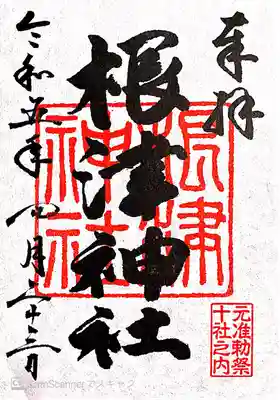 奉拝
根津神社
根津
神社
元准勅祭
十社之内
令和五年四月二十三日
CamScanner でスキャン